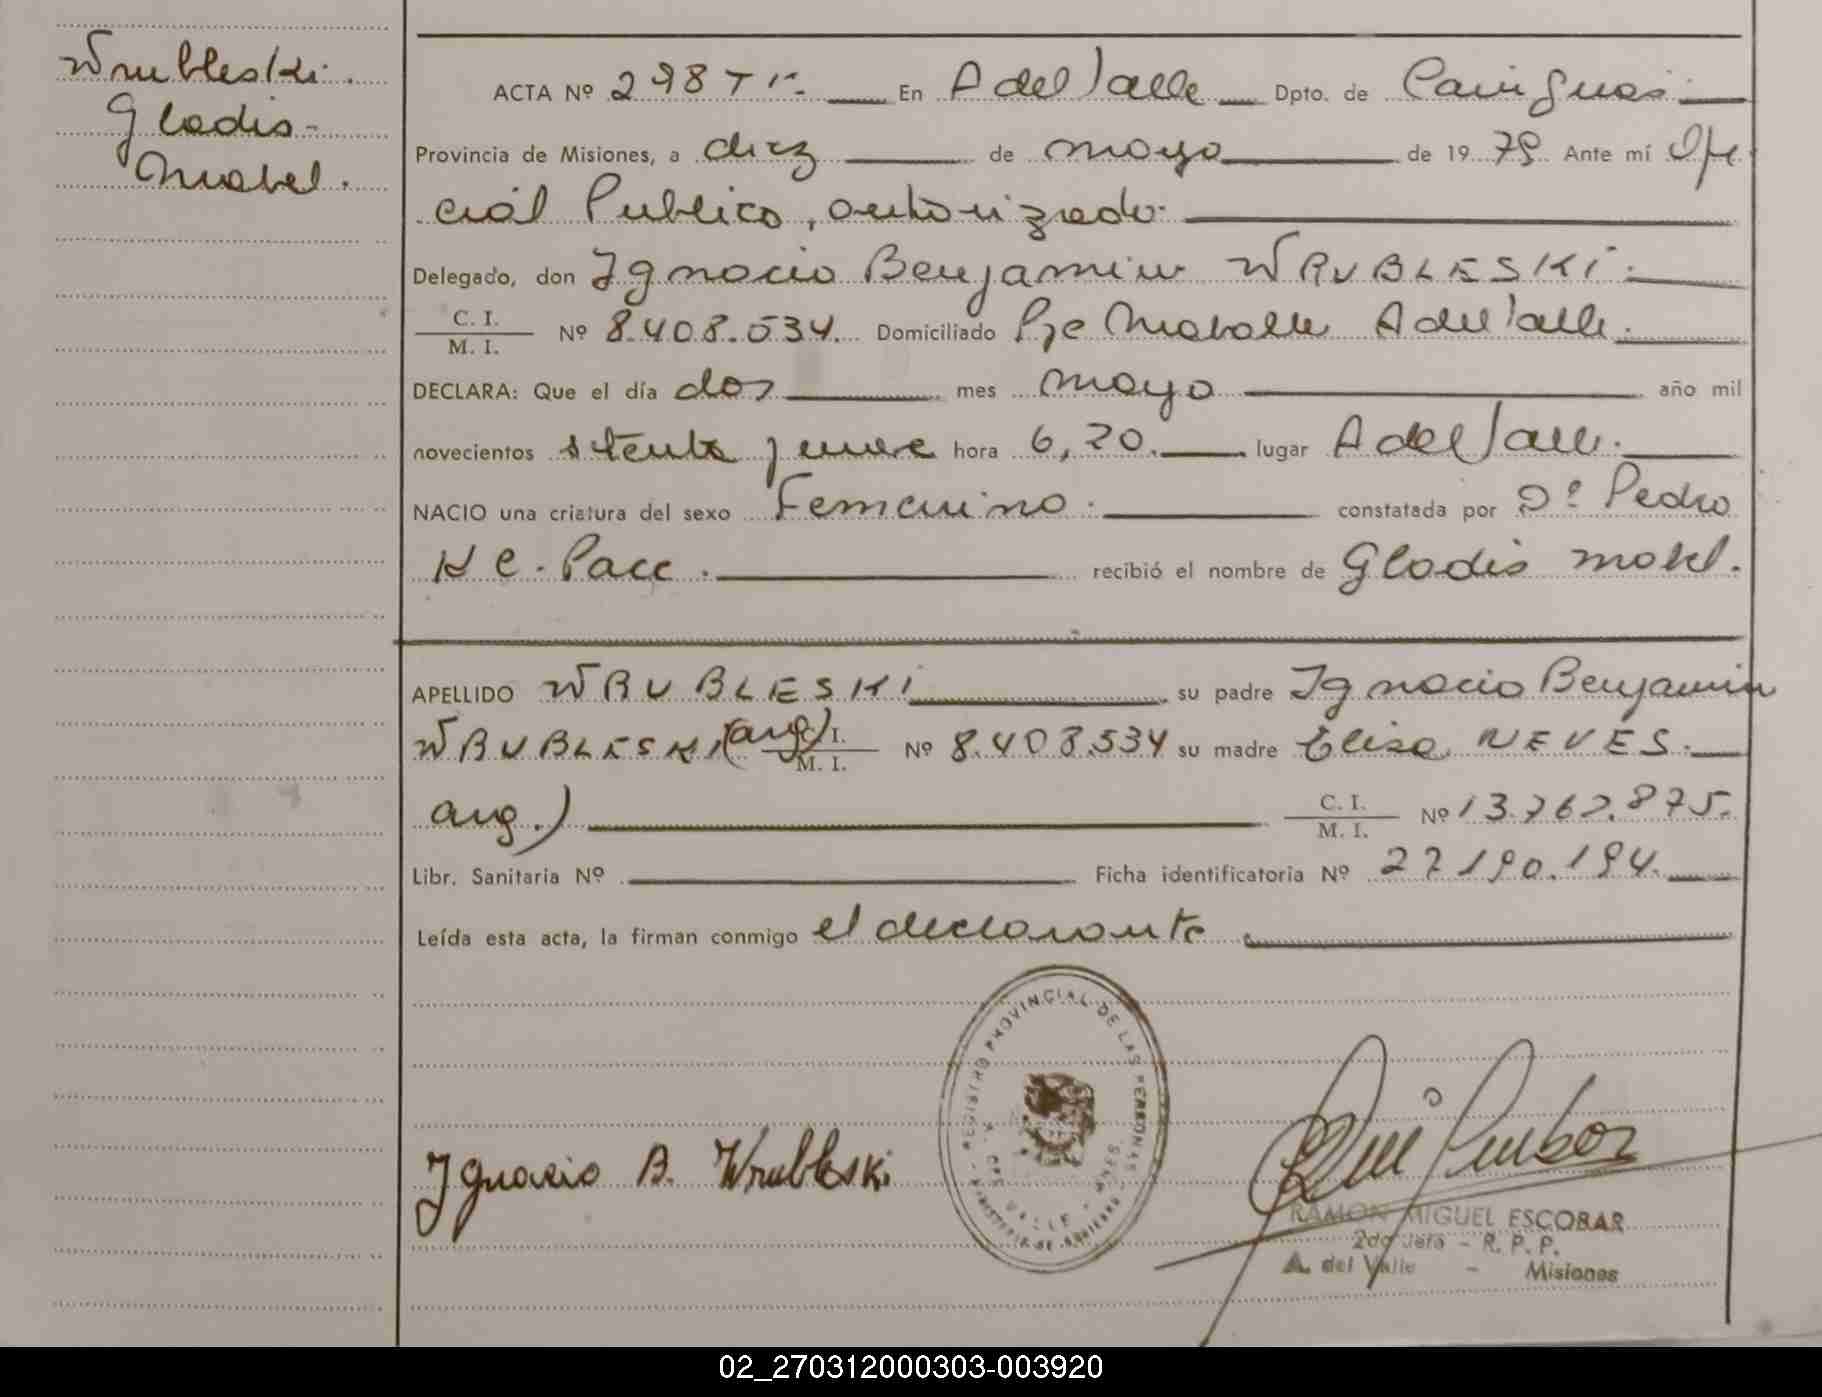 Wrubleski.
Gladis-
Mabel.
ACTA Nº 298 T Iº. En A del Valle Dpto. de Cainguas
Provincia de Misiones, a diez de mayo de 1979 Ante mí Ofi
cial Publico, autorizado.
Delegado, don Ignacio Benjamin WRUBLESKI.
C. I.
M. I. Nº 8.408.534. Domiciliado Pje A del Valle.
DECLARA: Que el día dos mes mayo año mil
novecientos setenta y nueve hora 6,20. lugar A del Valle.
NACIO una criatura del sexo Femenino. constatada por Dº Pedro
recibió el nombre de Gladis Mabel.
APELLIDO WRUBLESKI su padre Ignacio Benjamin
WRUBLESKI (arg) C. I.
M. I. Nº 8.408.534 su madre Elisa NEVES.
arg.) C. I.
M. I. Nº 13.767.875.
Libr. Sanitaria Nº Ficha identificatoria Nº 27190.194.
Leída esta acta, la firman conmigo el declarante
REGISTRO PROVINCIAL DE LAS PERSONAS - MINISTERIO DE GOBIERNO
Ignacio B. Wrubleski
RAMON MIGUEL ESCOBAR
2do Jefe - R. P. P.
A. del Valle - Misiones
02_270312000303-003920